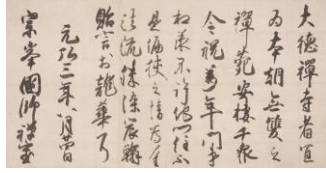 大德禪寺者宜
為本朝無雙之
禪苑安栖千衆
令祝万年門弟
相承不許他門住不
是偏狭之情為重
法流殊染宸翰
貽言於龍華耳
元弘三年八月廿四日
宗峯國師禪室